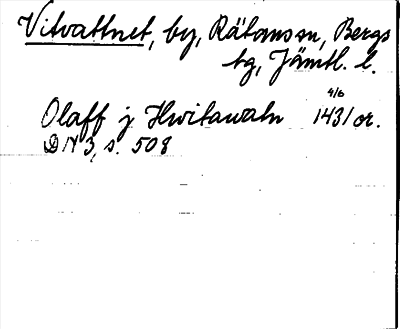 Vitvattnet, by, Rätans sn, Bergs
tg, Jämtl. l.
4/6
Olaff j Hwitawatn 1431 or.
DN 3, s. 508